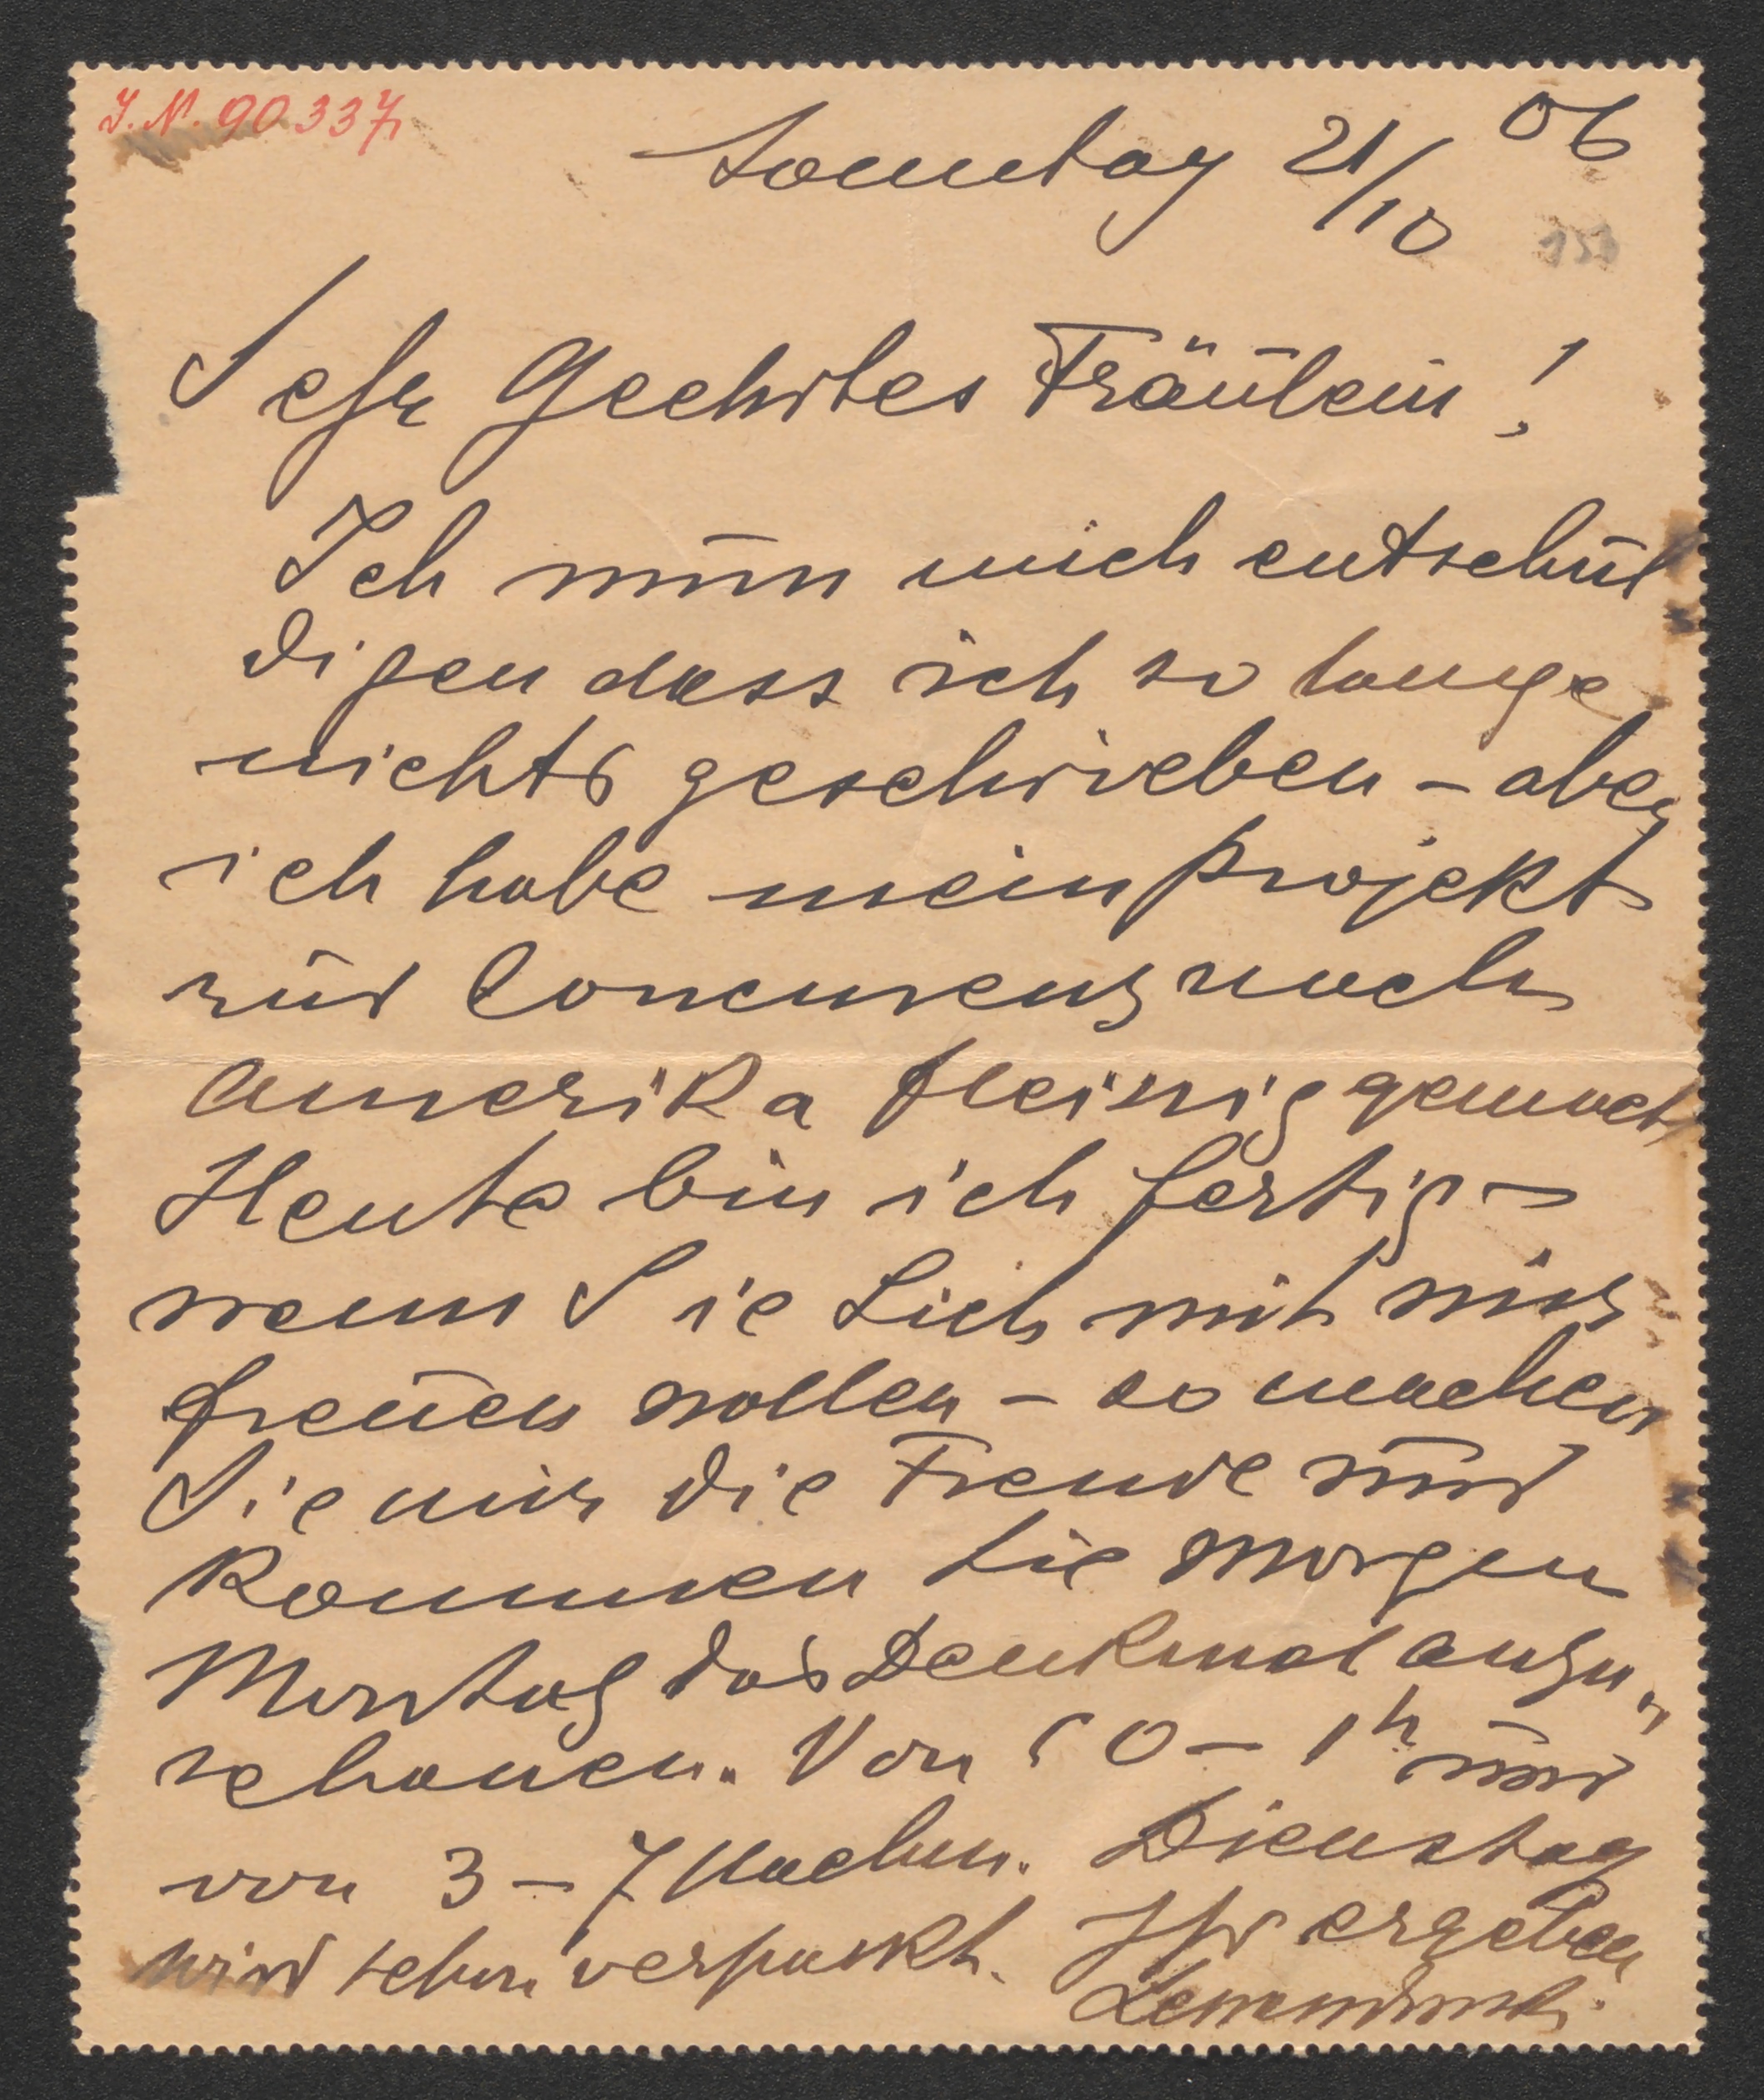 I. N. 90.337
Sonntag 21/10 06
Sehr Geehrtes Fräulein!
Ich muss mich entschul
digen dass ich so lange
nichts geschrieben – aber
ich habe mein Projekt
zur Concurenz nach
Amerika fleissig gemacht
Heute bin ich fertig –
wenn Sie Sich mit mir
freuen wollen – so machen
Sie mir die Freude und
kommen Sie Morgen
Montag das Denkmal anzu„
schauen. Von 10 – 1h und
von 3 – 7 Nachm. Dienstag
wird schon verpackt. Ihr ergeben